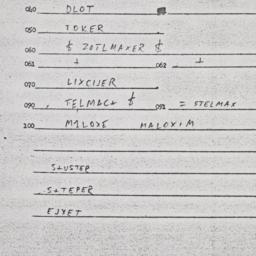 040 DLOT
050 TOKER
060 ZOTLMAXER
061 062
070 LIXCIJER
090 TELMACH 092 = STELMAX
100 MALOXIM
STUSTEP
S+TEPER
EJXET